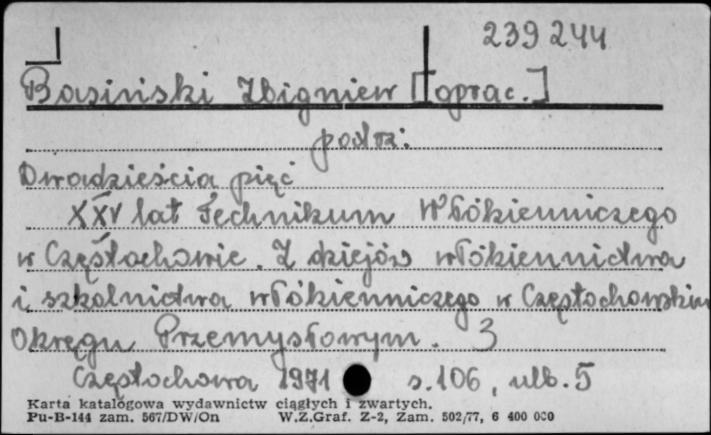 239244
Basiński Zbigniew [oprac.]
podtz:
Dwadzieścia pięć
XXV lat Technikum Włókienniczego
w Częstochowie. Z dziejów włókiennictwa
i szkolnictwa włókienniczego w Częstochowskim
Okręgu Przemysłowym. 3
Częstochowa 1971 s. 106, nlb. 5
Karta katalogowa wydawnictw ciągłych i zwartych.
Pu-B-144 zam. 567/DW/On W.Z.Graf. Z-2, Zam. 502/77, 6 400 000